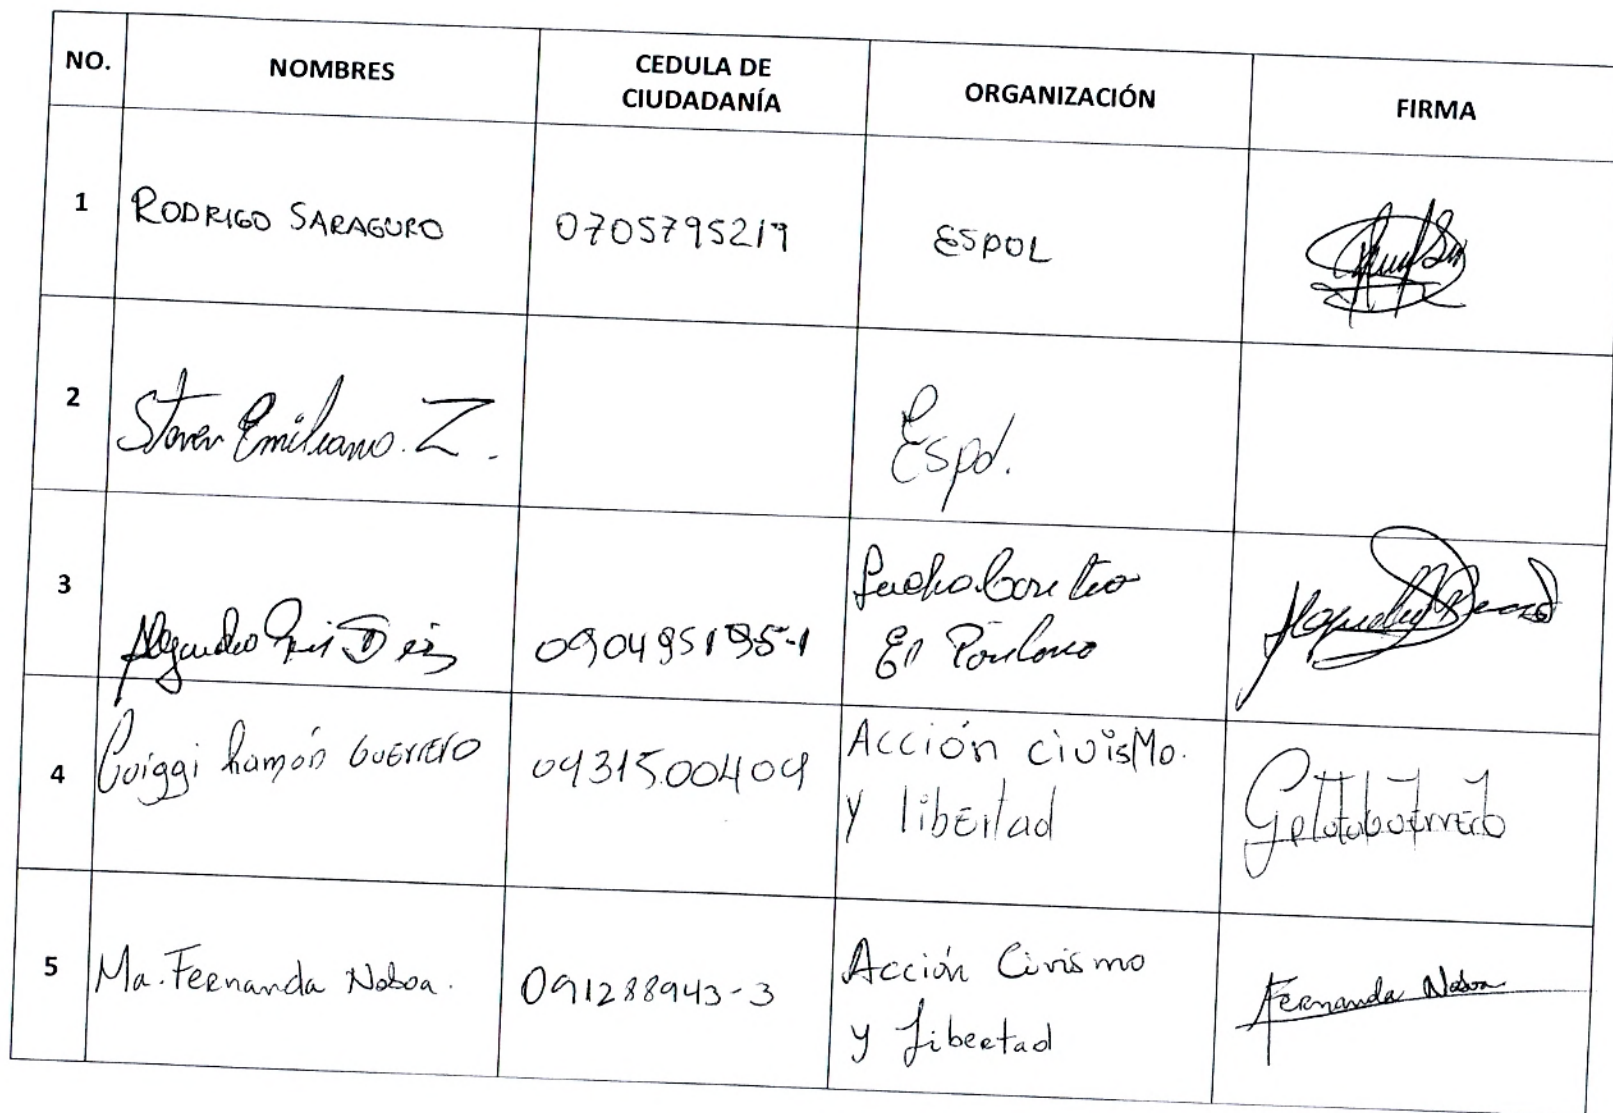 NO. NOMBRES CEDULA DE CIUDADANÍA ORGANIZACIÓN FIRMA
1 RODRIGO SARAGURO 0705795219 ESPOL
2 Steven Emiliano. Z. Espol.
3 Alejandro 090495195-1
4 Luiggi Ramón Guerrero 0931500409 Acción civisMo.
y libertad
5 Ma. Fernanda Noboa. 091288943-3 Acción Civismo Fernanda Noboa
y Libertad